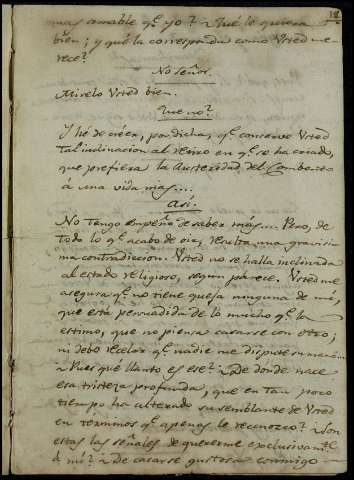 18
mas amable q.e yo? ¿Que le quiera
bien; y que la corresponda como Usted me-
rece?
No señor.
Mirelo Usted bien.
Que no?
Y hé de creér, por dicha, q.e conserve Usted
tal inclinacion al retiro en q.e se ha criado,
que prefiera la Austeridad del Combento
á una vida mas....
Asi.
No tengo empeño de saber más... Pero, de
todo lo q.e acabo de oir, resulta una gravisi-
ma contradiccion. Usted no se halla inclinada
al estado religioso, segun parece. Usted me
asegura q.e no tiene queja ninguna de mi,
que está persuadida de lo mucho q.e la
estimo, que no piensa casarse con otro;
ni debo recelar q.e nadie me dispute su mano...
Pues que llanto es ese? ¿De donde nace
esa tristeza profunda, que en tan poco
tiempo ha alterado su semblante de Usted
en terminos q.e apenas le reconozco? ¿Son
estas las señales de quererme exclusivam.te
á mi? ¿De casarse gustosa conmigo